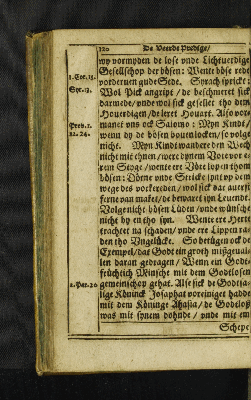 120 De Veerde Predige/
wy vormyden de lose unde Lichtverdige
Geselschop der bösen: Wente böse rede
1.Cor.15. vorderuen gude Sede. Syrach spricket:
Syr.13. Wol Pick angript / de beschmeret sick
darmede/ unde wol sick geselet tho dem
Houerdigen/ de leret Houart. Also vor-
Prov.1. manet uns ock Salomo: Myn Kindt/
22.24. wenn dy de bösen bouen locken/ so volge
nicht. Myn Kindt wandere den Wech
nicht mit ehnen/ were dynem Vote vor e-
rem Stige/ wente ere Vöte lopen thom
bösen: Dörne unde Stricke synt up dem
wege des vorkereden/ wol sick dar auerst
ferne van maket/ de bewaret syn Leuendt.
Volge nicht bösen Lüden/ unde wünsche
nicht by en tho syn. Wente ere Herte
trachtet na schaden/ unde ere Lippen ra-
den tho Ungelücke. So betügen ock de
Exempel/ dat Godt ein groth mißgeual-
len daran gedragen/ Wenn ein Godt-
früchtich Minsche mit dem Godtlosen
2.Par.20 gemeinschop gehat. Alse sick de Godtsa-
lige Köninck Josaphat voreiniget hadde
mit dem Köninge Ahasia/ de Godtloß
was mit synem dohnde/ unde mit em
Schepe